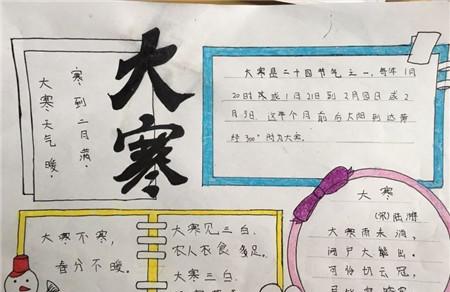 大寒天气暖,
寒到二月满。
大寒
大寒是二十四节气之一。每年1月
20日 或1月21日到2月 日或2
月5日 这 个月前后太阳到达黄
经300°时为大寒。
大寒不寒,
春分不暖。
大寒见三白,
农人衣食 足。
大寒三白,
大寒
(宋)陆游
大寒雪未消,
闭户不能出。
可怜切云冠,